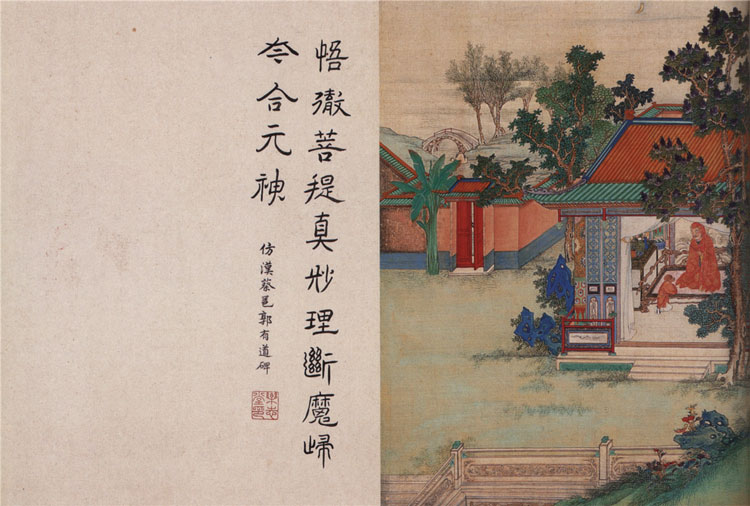 悟徹菩提真玅理斷魔㱕
夲合元神
仿漢蔡邕郭有道碑